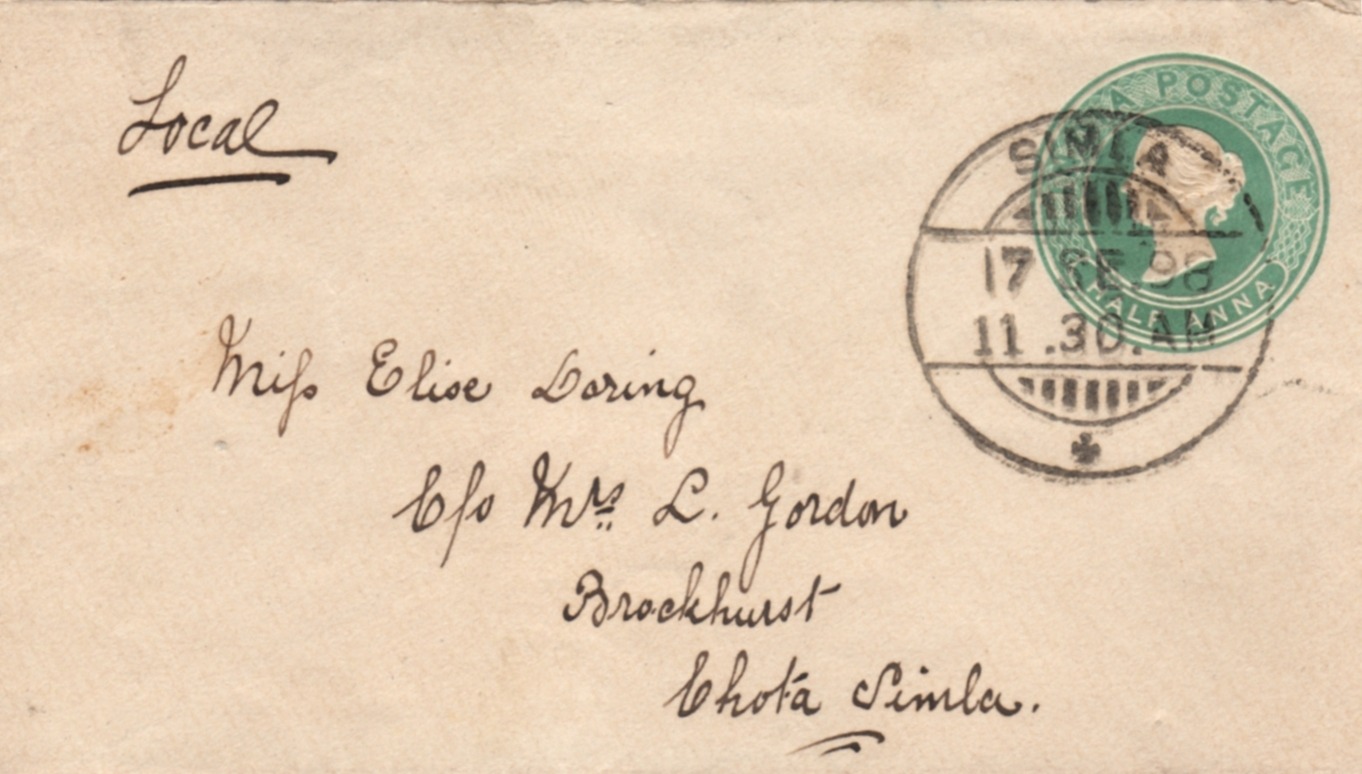 Local
A POSTAGE
HALF ANNA
SIMLA
17 SE.98
11.30.AM
Miss Elise Loring
C/o Mrs L. Gordon
Brockhurst
Chota Simla.